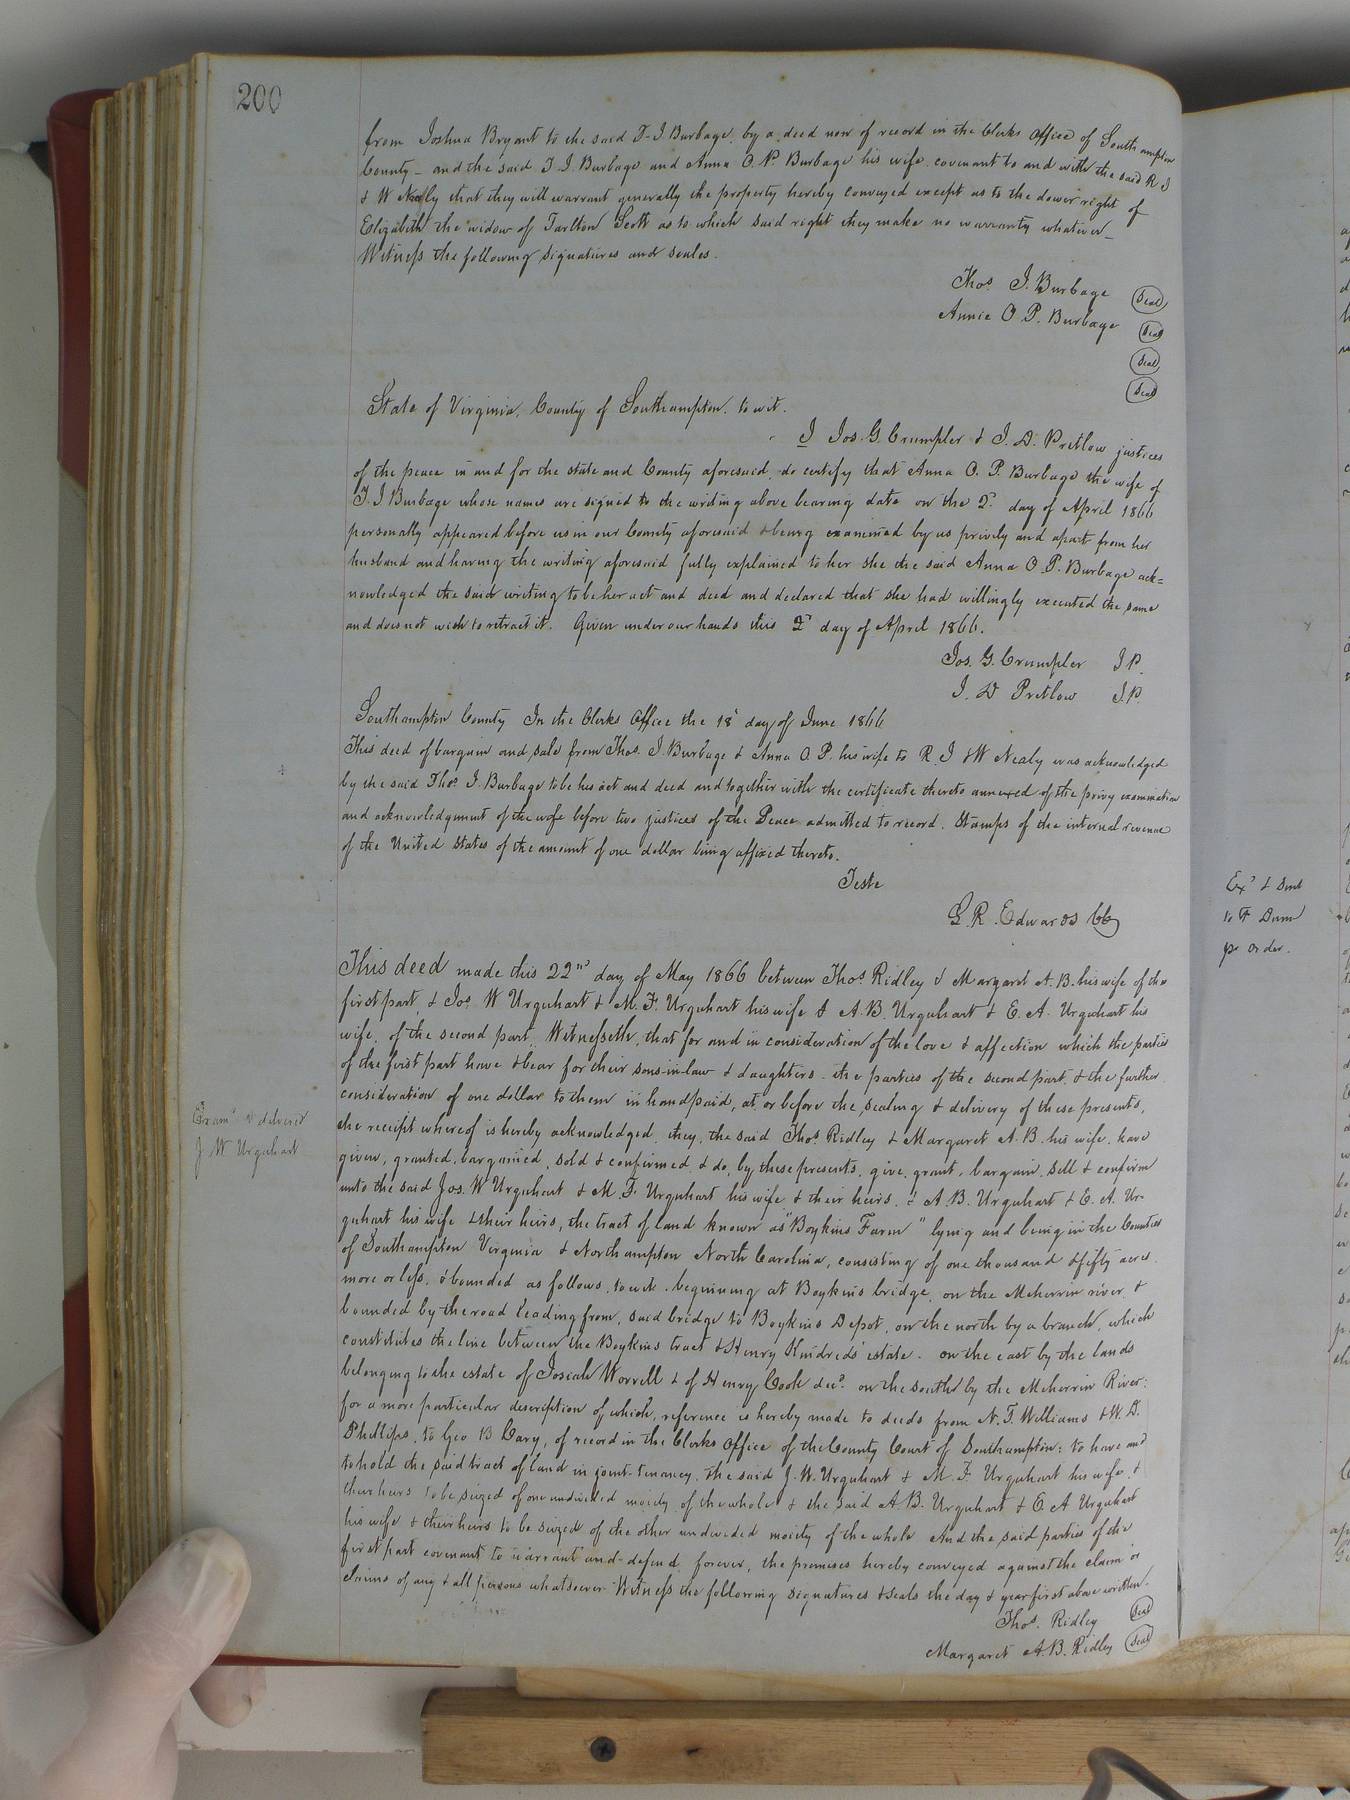 200
from Joshua Bryant to the said T. J. Burbage, by a deed now of record in the Clerks Office of Southampton
County – and the said T. J. Burbage and Anna O. P. Burbage his wife covenant to and with the said R J
& W Nealy that they will warrant generally the property hereby conveyed except as to the dower right of
Elizabeth the widow of Tarlton Scott as to which said right they make no warranty whatever –
Witness the following signatures and seales.
Thos. J. Burbage Seal
Annie O. P. Burbage Seal
Seal
Seal
State of Virginia, County of Southampton, to wit.
I Jos. G. Crumpler & J. D. Pretlow justices
of the peace in and for the state and County aforesaid, do certify that Anna O. P. Burbage the wife of
T. J Burbage whose names are signed to the writing above bearing date on the 2d. day of April 1866
personally appeared before us in our County aforesaid & being examined by us privily and apart from her
husband and having the writing aforesaid fully explained to her she the said Anna O. P. Burbage ack=
nowledged the said writing to be her act and deed and declared that she had willingly executed the same
and does not wish to retract it. Given under our hands this 2d day of April 1866.
Jos. G. Crumpler J P.
J. D Pretlow J. P.
Southampton County In the Clerks Office the 18' day of June 1866
This deed of bargain and sale from Thos. J. Burbage & Anna O. P. his wife to R. J & W Nealy was acknowledged
by the said Thos. J. Burbage to be his act and deed and together with the certificate thereto annexed of the privy examination
and acknowledgment of the wife before two justices of the Peace admitted to record. Stamps of the internal revenue
of the United States of the amount of one dollar being affixed thereto.
Teste
G. R. Edwards CC
This deed made this 22nd day of May 1866 between Thos. Ridley & Margaret A. B. his wife of the
first part, & Jos. W Urquhart & M. F. Urquhart his wife & A. B. Urquhart & E. A. Urquhart his
wife, of the second part, Witnesseth, that for and in consideration of the love & affection which the parties
of the first part have & bear for their sons-in-law & daughters – the parties of the second part, & the further
consideration of one dollar to them in hand paid, at or before the sealing & delivery of these presents,
the receipt whereof is hereby acknowledged, they, the said Thos. Ridley & Margaret A. B. his wife, have
given, granted, bargained, sold & confirmed, & do, by these presents, give, grant, bargain, sell & confirm
unto the said Jos. W Urquhart & M. F. Urquhart his wife & their heirs, & A. B. Urquhart & E. A. Ur-
quhart his wife & their heirs, the tract of land known as "Boykins Farm" lying and being in the Counties
of Southampton Virginia & Northampton North Carolina, consisting of one thousand & fifty acres
more or less, & bounded as follows, to wit. beginning at Boykins bridge, on the Meherrin river, &
bounded by the road leading from, said bridge to Boykins Depot, on the north by a branch, which
constitutes the line between the Boykins tract & Henry Kindreds' estate – on the east by the lands
belonging to the estate of Josiah Worrell & of Henry Cook decd. on the south by the Meherrin River:
for a more particular description of which, reference is hereby made to deeds from N. T. Williams & W. D.
Phillips, to Geo B Cary, of record in the Clerks Office of the County Court of Southampton: to have and
to hold the said tract of land in joint-tenancy, the said J. W. Urquhart & M. F. Urquhart his wife, &
their heirs to be seized of one undivided moiety of the whole & the said A. B. Urquhart & E. A Urquhart
his wife & their heirs to be seized of the other undivided moiety of the whole And the said parties of the
first part covenant to warrant and defend, forever, the premises hereby conveyed against the claim or
claims of any & all persons whatsoever Witness the following signatures & seals the day & year first above written.
Thos. Ridley Seal
Margaret A. B. Ridley Seal
Examd & delivered
J W Urquhart
Exd & Sent
to F Dunn
pr order.